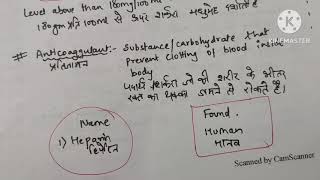 Level above than 180mg/100ml
180gm प्रति 100ml से ऊपर मधुमेह
KINEMASTER
# Anticoagulant:- Substance/carbohydrate that
prevent clotting of blood inside
body
पदार्थ जो की शरीर के भीतर
रक्त का थक्का जमने से रोकते है।
Name
1) Heparin
हिपेरिन
Found.
Human
मानव
Scanned by CamScanner